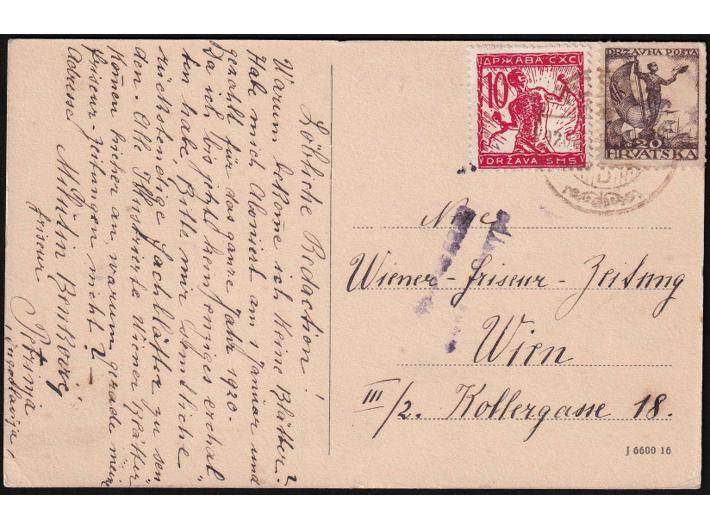 Löbliche Redaction!
Warum bekome ich keine Blätter?
Hab mich Aboniert am 1 Januar und
gezahlt für das ganze Jahr 1920-
Da ich bis jetzt kein einziges erhal-
ten habe, Bitte mir Sämtliche
rückständige Fachblätter zu sen
den. Alle Illustrierte Wiener Blätter
komen hieher an, warum grade meine
friseur-Zeitungen nicht? -
Adresse Milutin Benković
friseur Petrinja
Jugoslavija,
ДРЖАВА СХС
10
DRŽAVA SHS
DRŽAVNA POŠTA
20
HRVATSKA
Neue
Wiener-Friseur-Zeitung
Wien
III/2. Kollergasse 18.
J 6600 16